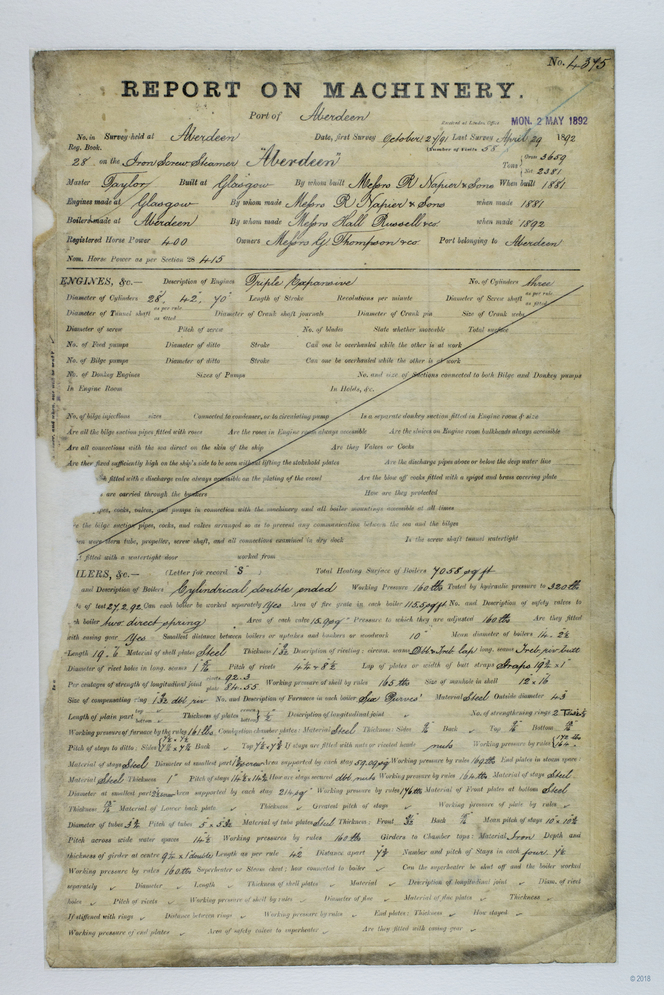 No. 4375
REPORT ON MACHINERY.
Port of Aberdeen
Received at London Office MON. 2 MAY 1892
No. in Survey held at Aberdeen Date, first Survey October 27/91 Last Survey April 29 1892
Reg. Book. (Number of Visits 58)
28 on the Iron Screw Steamer "Aberdeen" Tons Gross 3659 Net 2381
Master Taylor Built at Glasgow By whom built Messrs R Napier & Sons When built 1881
Engines made at Glasgow By whom made Messrs R Napier & Sons when made 1881
Boilers made at Aberdeen By whom made Messrs Hall Russell & Co when made 1892
Registered Horse Power 400 Owners Messrs G Thompson & Co Port belonging to Aberdeen
Nom. Horse Power as per Section 28 415
ENGINES, &c.— Description of Engines Triple Expansive No. of Cylinders three
Diameter of Cylinders 28", 42", 70" Length of Stroke Revolutions per minute Diameter of Screw shaft as per rule as fitted
Diameter of Tunnel shaft as per rule as fitted Diameter of Crank shaft journals Diameter of Crank pin Size of Crank webs
Diameter of screw Pitch of screw No. of blades State whether moveable Total surface
No. of Feed pumps Diameter of ditto Stroke Can one be overhauled while the other is at work
No. of Bilge pumps Diameter of ditto Stroke Can one be overhauled while the other is at work
No. of Donkey Engines Sizes of Pumps No. and size of Suctions connected to both Bilge and Donkey pumps
In Engine Room In Holds, &c.
No. of bilge injections sizes Connected to condenser, or to circulating pump Is a separate donkey suction fitted in Engine room & size
Are all the bilge suction pipes fitted with roses Are the roses in Engine room always accessible Are the sluices on Engine room bulkheads always accessible
Are all connections with the sea direct on the skin of the ship Are they Valves or Cocks
Are they fixed sufficiently high on the ship's side to be seen without lifting the stokehold plates Are the discharge pipes above or below the deep water line
fitted with a discharge valve always accessible on the plating of the vessel Are the blow off cocks fitted with a spigot and brass covering plate
are carried through the bunkers How are they protected
pipes, cocks, valves, and pumps in connection with the machinery and all boiler mountings accessible at all times
the bilge suction pipes, cocks, and valves arranged so as to prevent any communication between the sea and the bilges
were stern tube, propeller, screw shaft, and all connections examined in dry dock Is the screw shaft tunnel watertight
fitted with a watertight door worked from
ILERS, &c.— (Letter for record "S") Total Heating Surface of Boilers 7058 sq ft
and Description of Boilers Cylindrical double ended Working Pressure 160 lbs Tested by hydraulic pressure to 320 lbs
of test 27.2.92 Can each boiler be worked separately Yes Area of fire grate in each boiler 115.5 sq ft No. and Description of safety valves to
boiler two direct spring Area of each valve 15.9 sq" Pressure to which they are adjusted 160 lbs Are they fitted
with easing gear Yes Smallest distance between boilers or uptakes and bunkers or woodwork 10" Mean diameter of boilers
Length 19-6 Material of shell plates Steel Thickness Description of riveting: circum. seams long. seams Treb riv butt
Diameter of rivet holes in long. seams Pitch of rivets Lap of plates or width of butt straps
Per centages of strength of longitudinal joint rivets 92.3 plate 84.55 Working pressure of shell by rules 165 lbs Size of manhole in shell 12 x 16
Size of compensating ring No. and Description of Furnaces in each boiler Six Purves' Material Steel Outside diameter 43
Length of plain part top bottom Thickness of plates Description of longitudinal joint No. of strengthening rings
Working pressure of furnace by the rules 161 lbs Combustion chamber plates: Material Steel Thickness: Sides Back Top Bottom
Pitch of stays to ditto: Sides Back Top If stays are fitted with nuts or riveted heads nuts Working pressure by rules
Material of stays Steel Diameter at smallest part Area supported by each stay Working pressure by rules End plates in steam space:
Material Steel Thickness 1" Pitch of stays How are stays secured dbl nuts Working pressure by rules 164 lbs Material of stays Steel
Diameter at smallest part Area supported by each stay Working pressure by rules Material of Front plates at bottom Steel
Thickness Material of Lower back plate Thickness Greatest pitch of stays Working pressure of plate by rules
Diameter of tubes Pitch of tubes Material of tube plates Steel Thickness: Front Back Mean pitch of stays
Pitch across wide water spaces Working pressures by rules 160 lbs Girders to Chamber tops: Material Iron Depth and
thickness of girder at centre Length as per rule Distance apart Number and pitch of Stays in each four
Working pressure by rules 160 lbs Superheater or Steam chest; how connected to boiler Can the superheater be shut off and the boiler worked
separately Diameter Length Thickness of shell plates Material Description of longitudinal joint Diam. of rivet
holes Pitch of rivets Working pressure of shell by rules Diameter of flue Material of flue plates Thickness
If stiffened with rings Distance between rings Working pressure by rules End plates: Thickness How stayed
Working pressure of end plates Area of safety valves to superheater Are they fitted with easing gear
© 2018